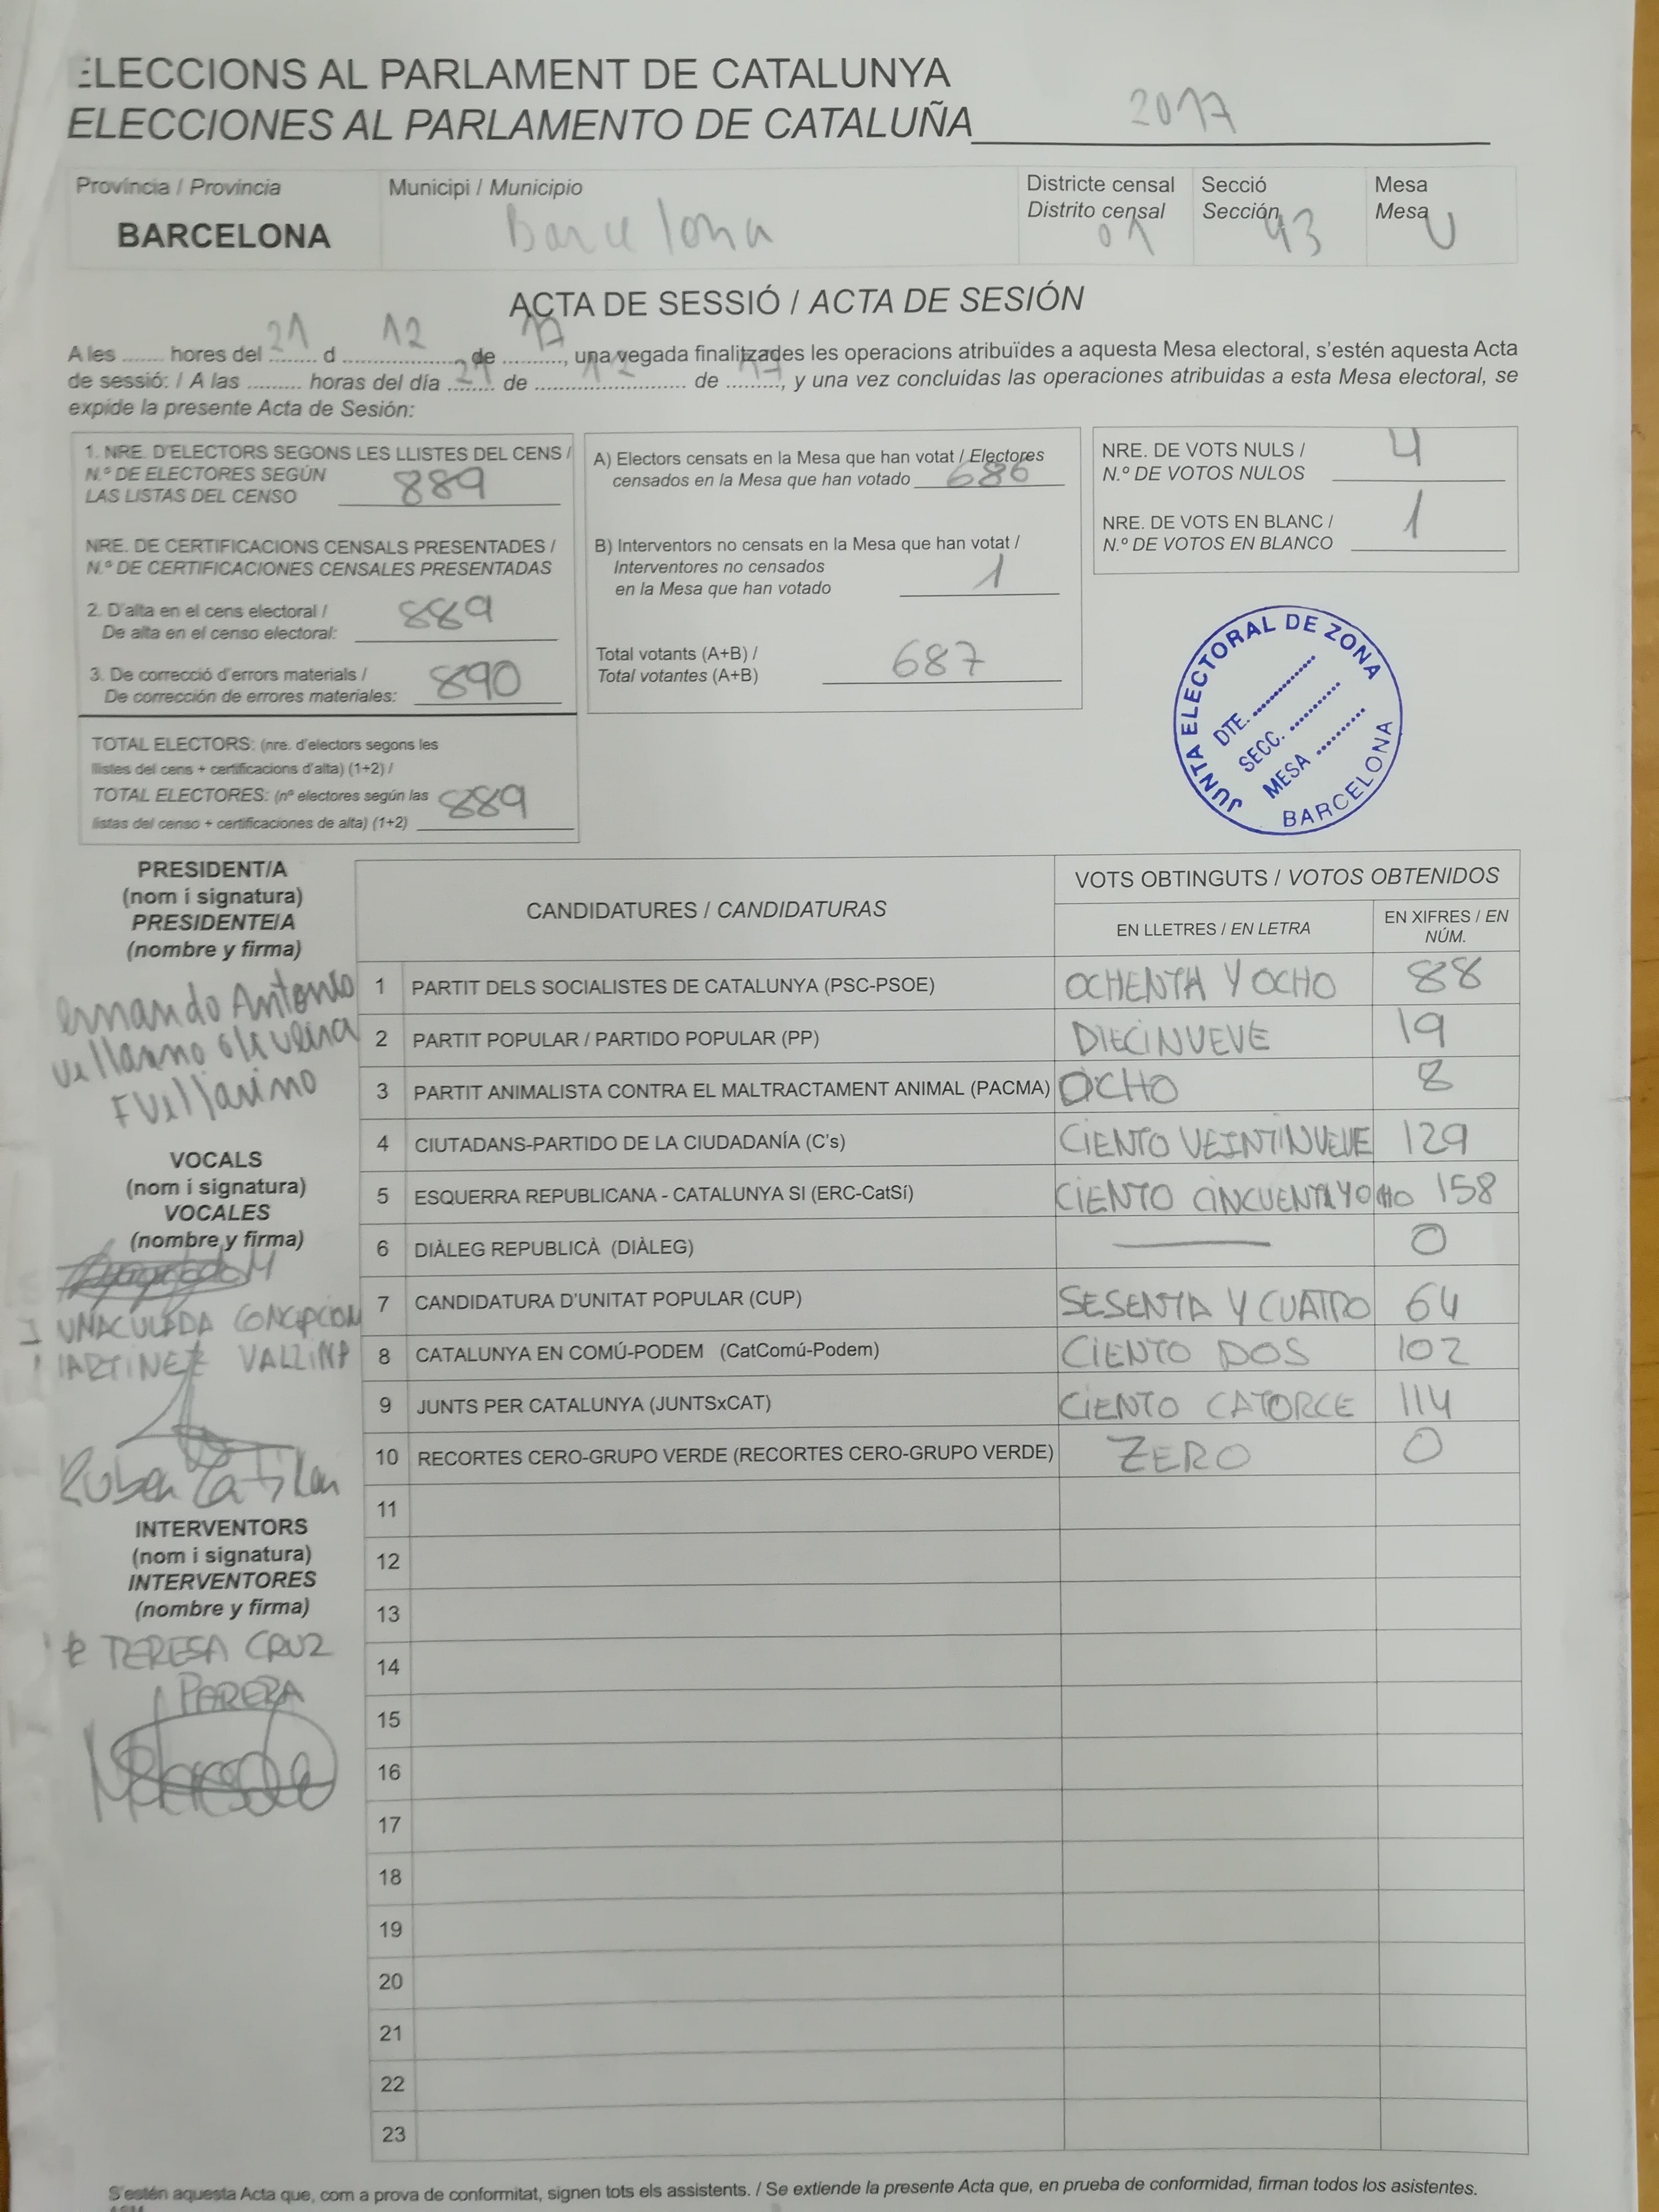 ELECCIONS AL PARLAMENT DE CATALUNYA
ELECCIONES AL PARLAMENTO DE CATALUÑA 2017
Província / Provincia
BARCELONA
Municipi / Municipio
Barcelona
Districte censal
Distrito censal
01
Secció
Sección
43
Mesa
Mesa
U
ACTA DE SESSIÓ / ACTA DE SESIÓN
A les ....... hores del 21 d 12 de 17, una vegada finalitzades les operacions atribuïdes a aquesta Mesa electoral, s'estén aquesta Acta
de sessió: / A las ......... horas del día 21 de 12 de 17, y una vez concluidas las operaciones atribuidas a esta Mesa electoral, se
expide la presente Acta de Sesión:
1. NRE. D'ELECTORS SEGONS LES LLISTES DEL CENS /
N.º DE ELECTORES SEGÚN
LAS LISTAS DEL CENSO 889
NRE. DE CERTIFICACIONS CENSALS PRESENTADES /
N.º DE CERTIFICACIONES CENSALES PRESENTADAS
2. D'alta en el cens electoral /
De alta en el censo electoral: 889
3. De correcció d'errors materials /
De corrección de errores materiales: 890
TOTAL ELECTORS: (nre. d'electors segons les
llistes del cens + certificacions d'alta) (1+2) /
TOTAL ELECTORES: (nº electores según las
listas del censo + certificaciones de alta) (1+2) 889
A) Electors censats en la Mesa que han votat / Electores
censados en la Mesa que han votado 686
B) Interventors no censats en la Mesa que han votat /
Interventores no censados
en la Mesa que han votado 1
Total votants (A+B) /
Total votantes (A+B) 687
NRE. DE VOTS NULS /
N.º DE VOTOS NULOS 4
NRE. DE VOTS EN BLANC /
N.º DE VOTOS EN BLANCO 1
JUNTA ELECTORAL DE ZONA
DTE. ..............
SECC. ..........
MESA ..........
BARCELONA
PRESIDENT/A
(nom i signatura)
PRESIDENTE/A
(nombre y firma)
ernando Antonio
Vellarino Oliveira
FVellarino
VOCALS
(nom i signatura)
VOCALES
(nombre y firma)
CONCEPCION
VALLINA
Ruben
INTERVENTORS
(nom i signatura)
INTERVENTORES
(nombre y firma)
TERESA CRUZ
CANDIDATURES / CANDIDATURAS
VOTS OBTINGUTS / VOTOS OBTENIDOS
EN LLETRES / EN LETRA
EN XIFRES / EN
NÚM.
1 PARTIT DELS SOCIALISTES DE CATALUNYA (PSC-PSOE) OCHENTA Y OCHO 88
2 PARTIT POPULAR / PARTIDO POPULAR (PP) DIECINUEVE 19
3 PARTIT ANIMALISTA CONTRA EL MALTRACTAMENT ANIMAL (PACMA) OCHO 8
4 CIUTADANS-PARTIDO DE LA CIUDADANÍA (C's) CIENTO VEINTINUEVE 129
5 ESQUERRA REPUBLICANA - CATALUNYA SI (ERC-CatSí) CIENTO CINCUENTA Y OCHO 158
6 DIÀLEG REPUBLICÀ (DIÀLEG) — 0
7 CANDIDATURA D'UNITAT POPULAR (CUP) SESENTA Y CUATRO 64
8 CATALUNYA EN COMÚ-PODEM (CatComú-Podem) CIENTO DOS 102
9 JUNTS PER CATALUNYA (JUNTSxCAT) CIENTO CATORCE 114
10 RECORTES CERO-GRUPO VERDE (RECORTES CERO-GRUPO VERDE) ZERO 0
11
12
13
14
15
16
17
18
19
20
21
22
23
S'estén aquesta Acta que, com a prova de conformitat, signen tots els assistents. / Se extiende la presente Acta que, en prueba de conformidad, firman todos los asistentes.